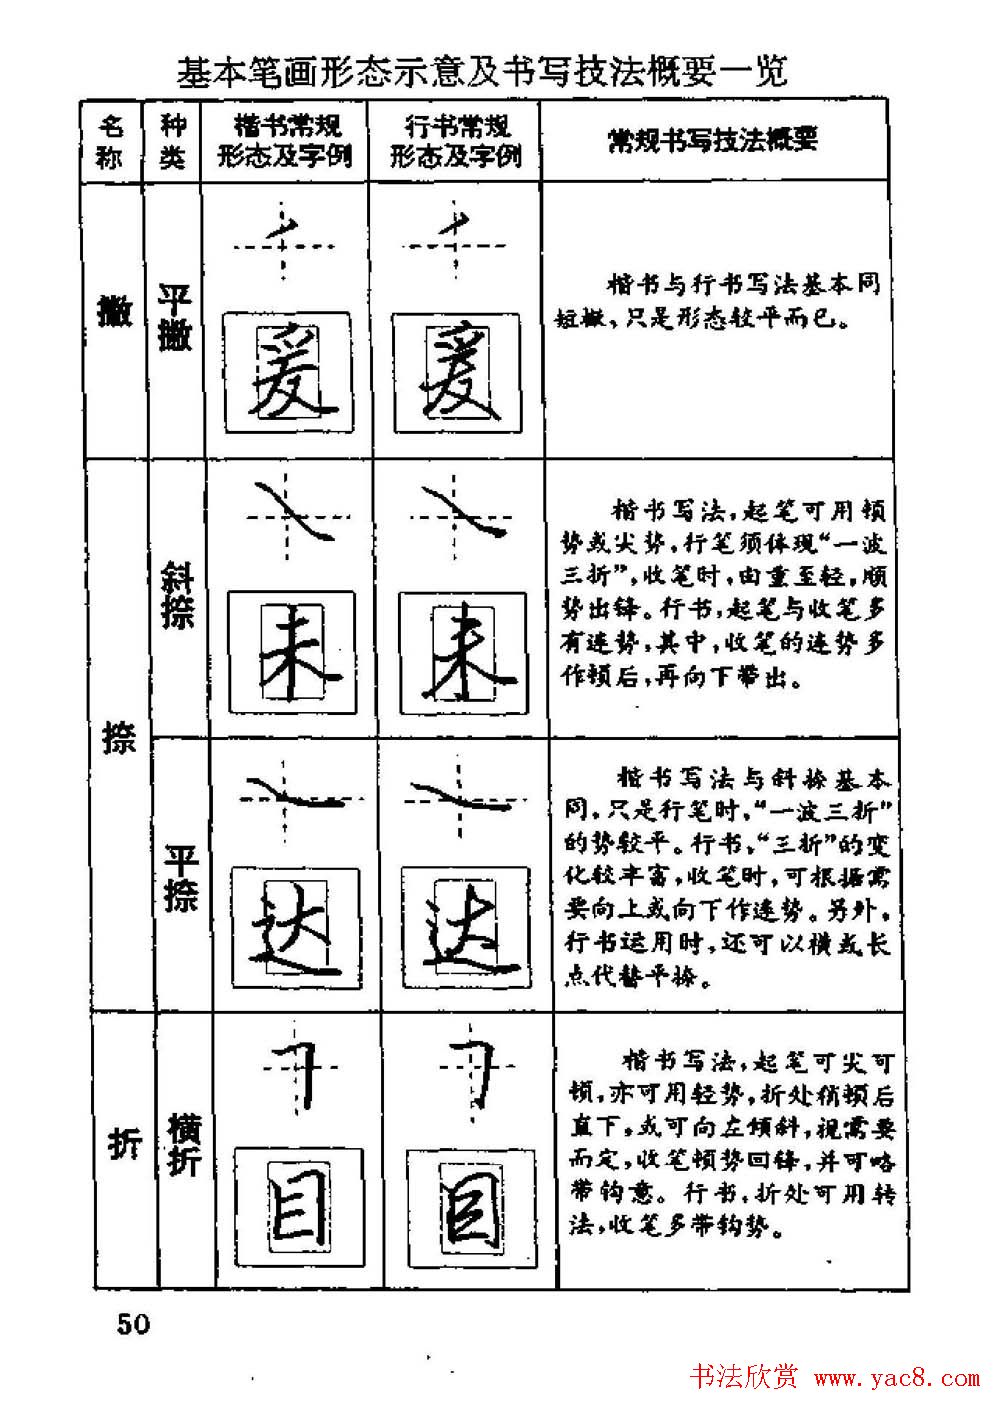 基本笔画形态示意及书写技法概要一览
名称
种类
楷书常规
形态及字例
行书常规
形态及字例
常规书写技法概要
撇
平撇
爰
爰
楷书与行书写法基本同
短撇，只是形态较平而已。
捺
斜捺
未
未
楷书写法，起笔可用顿
势或尖势，行笔须体现“一波
三折”，收笔时，由重至轻，顺
势出锋。行书，起笔与收笔多
有连势，其中，收笔的连势多
作顿后，再向下带出。
平捺
达
达
楷书写法与斜捺基本
同，只是行笔时，“一波三折”
的势较平。行书，“三折”的变
化较丰富，收笔时，可根据需
要向上或向下作连势。另外，
行书运用时，还可以横或长
点代替平捺。
折
横折
目
目
楷书写法，起笔可尖可
顿，亦可用轻势，折处稍顿后
直下，或可向左倾斜，视需要
而定，收笔顿势回锋，并可略
带钩意。行书，折处可用转
法，收笔多带钩势。
50
书法欣赏 www.yac8.com